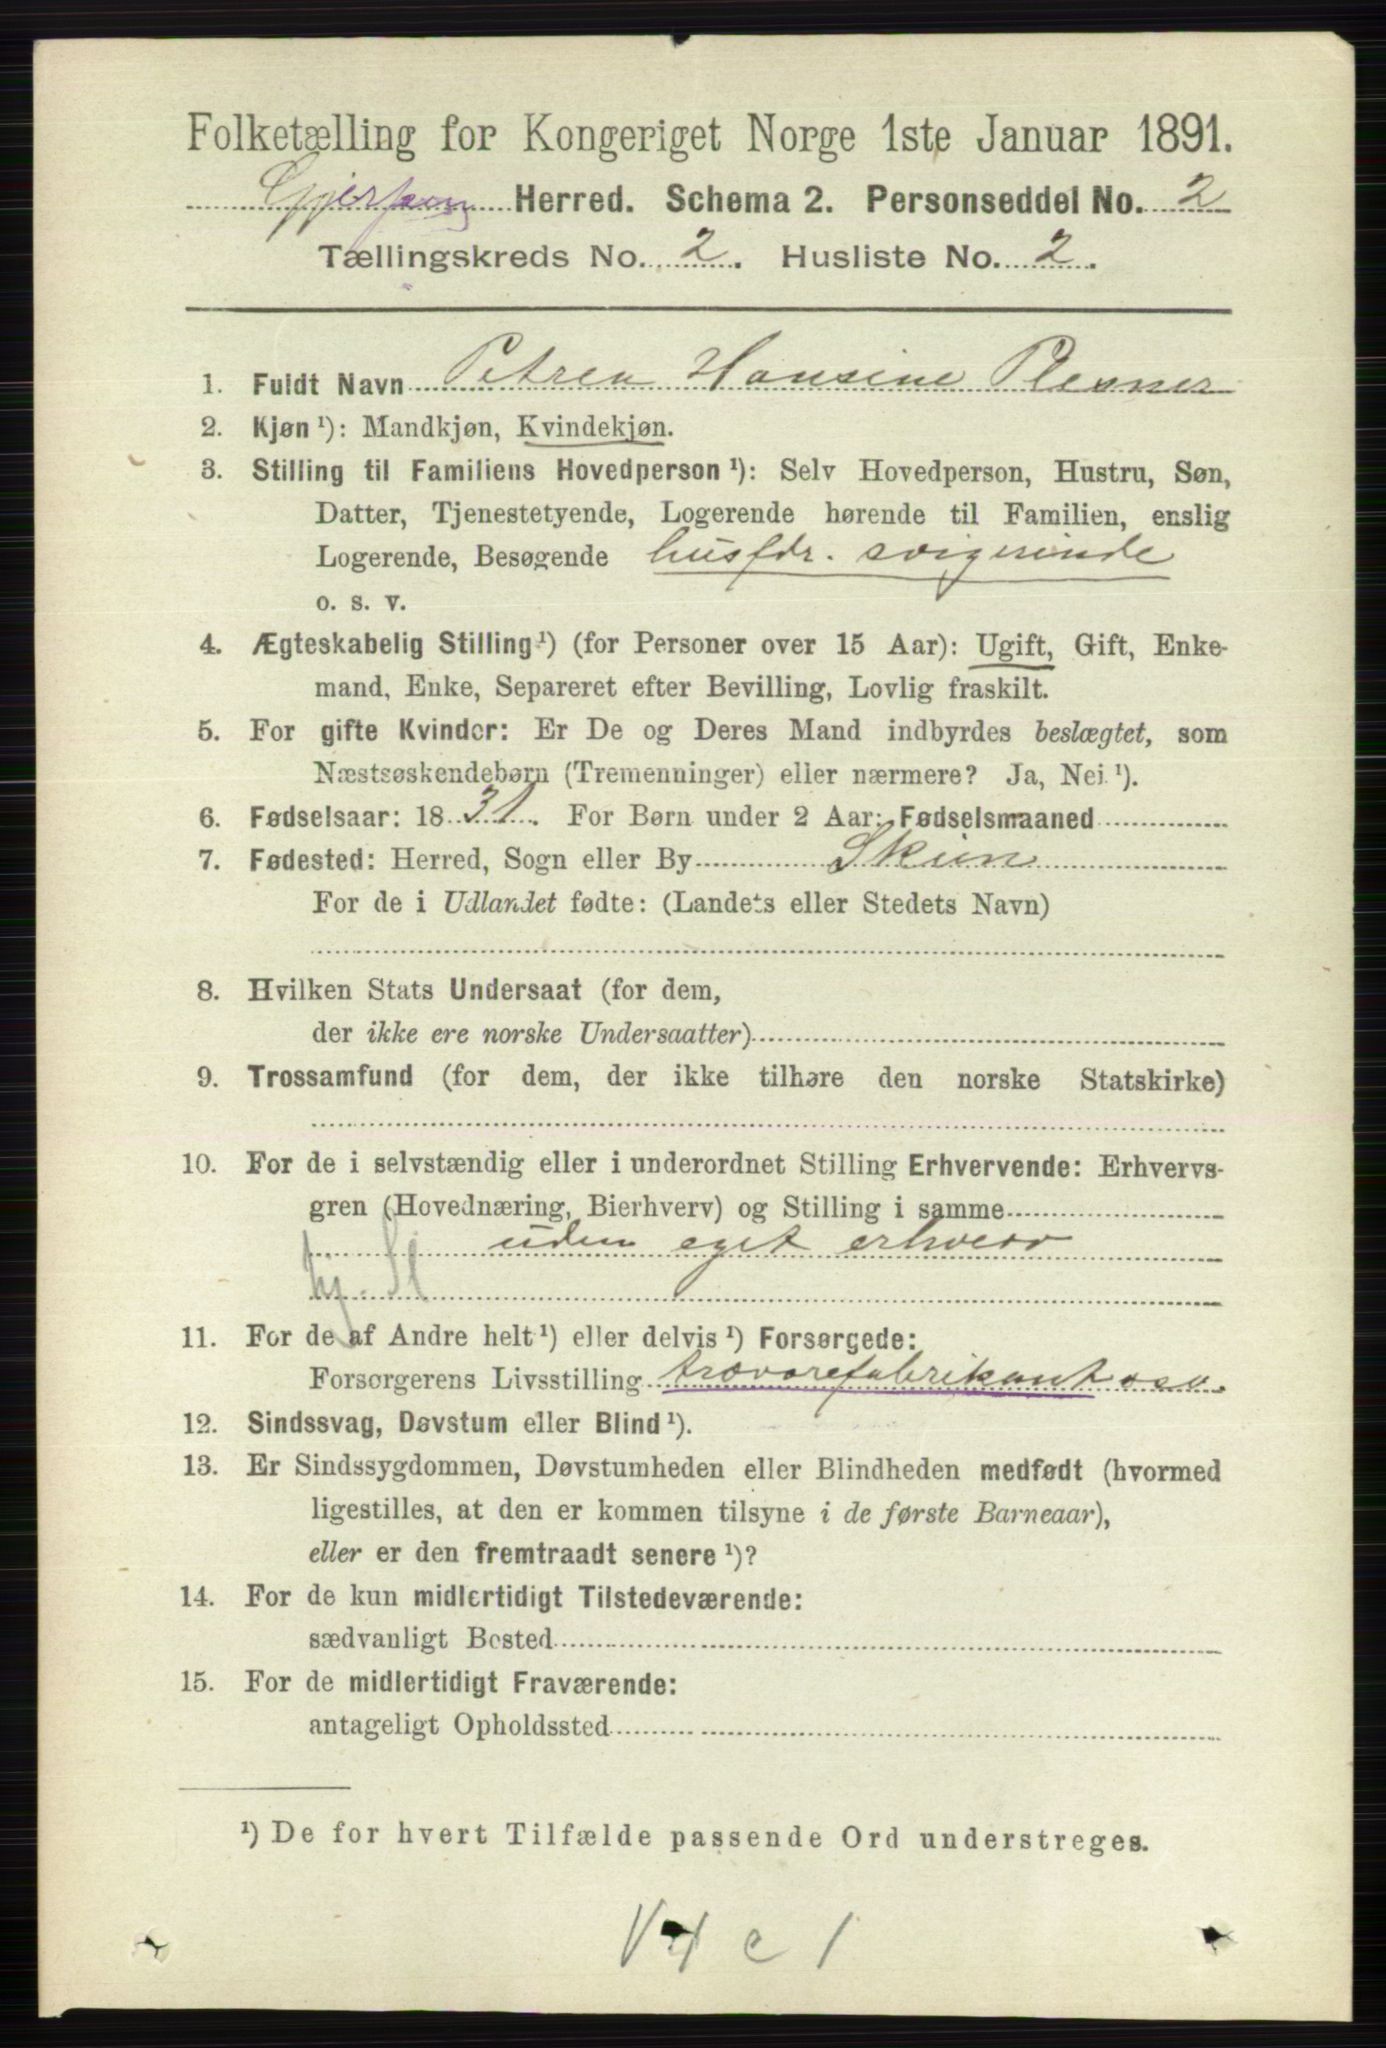 Folketælling for Kongeriget Norge 1ste Januar 1891.
Gjerpen Herred. Schema 2. Personseddel No. 2
Tællingskreds No. 2. Husliste No. 2.
1. Fuldt Navn Petrea Hansine Plesner
2. Kjøn ¹): Mandkjøn, Kvindekjøn.
3. Stilling til Familiens Hovedperson ¹): Selv Hovedperson, Hustru, Søn,
Datter, Tjenestetyende, Logerende hørende til Familien, enslig
Logerende, Besøgende husfdr. svigerinde
o. s. v.
4. Ægteskabelig Stilling ¹) (for Personer over 15 Aar): Ugift, Gift, Enke-
mand, Enke, Separeret efter Bevilling, Lovlig fraskilt.
5. For gifte Kvinder: Er De og Deres Mand indbyrdes beslægtet, som
Næstsøskendebørn (Tremenninger) eller nærmere? Ja, Nei ¹).
6. Fødselsaar: 1831. For Børn under 2 Aar: Fødselsmaaned
7. Fødested: Herred, Sogn eller By Skien
For de i Udlandet fødte: (Landets eller Stedets Navn)
8. Hvilken Stats Undersaat (for dem,
der ikke ere norske Undersaatter)
9. Trossamfund (for dem, der ikke tilhøre den norske Statskirke)
10. For de i selvstændig eller i underordnet Stilling Erhvervende: Erhvervs-
gren (Hovednæring, Bierhverv) og Stilling i samme
uden eget erhverv
11. For de af Andre helt ¹) eller delvis ¹) Forsørgede:
Forsørgerens Livsstilling trævarefabrikant osv.
12. Sindssvag, Døvstum eller Blind ¹).
13. Er Sindssygdommen, Døvstumheden eller Blindheden medfødt (hvormed
ligestilles, at den er kommen tilsyne i de første Barneaar),
eller er den fremtraadt senere ¹)?
14. For de kun midlertidigt Tilstedeværende:
sædvanligt Bosted
15. For de midlertidigt Fraværende:
antageligt Opholdssted
¹) De for hvert Tilfælde passende Ord understreges.